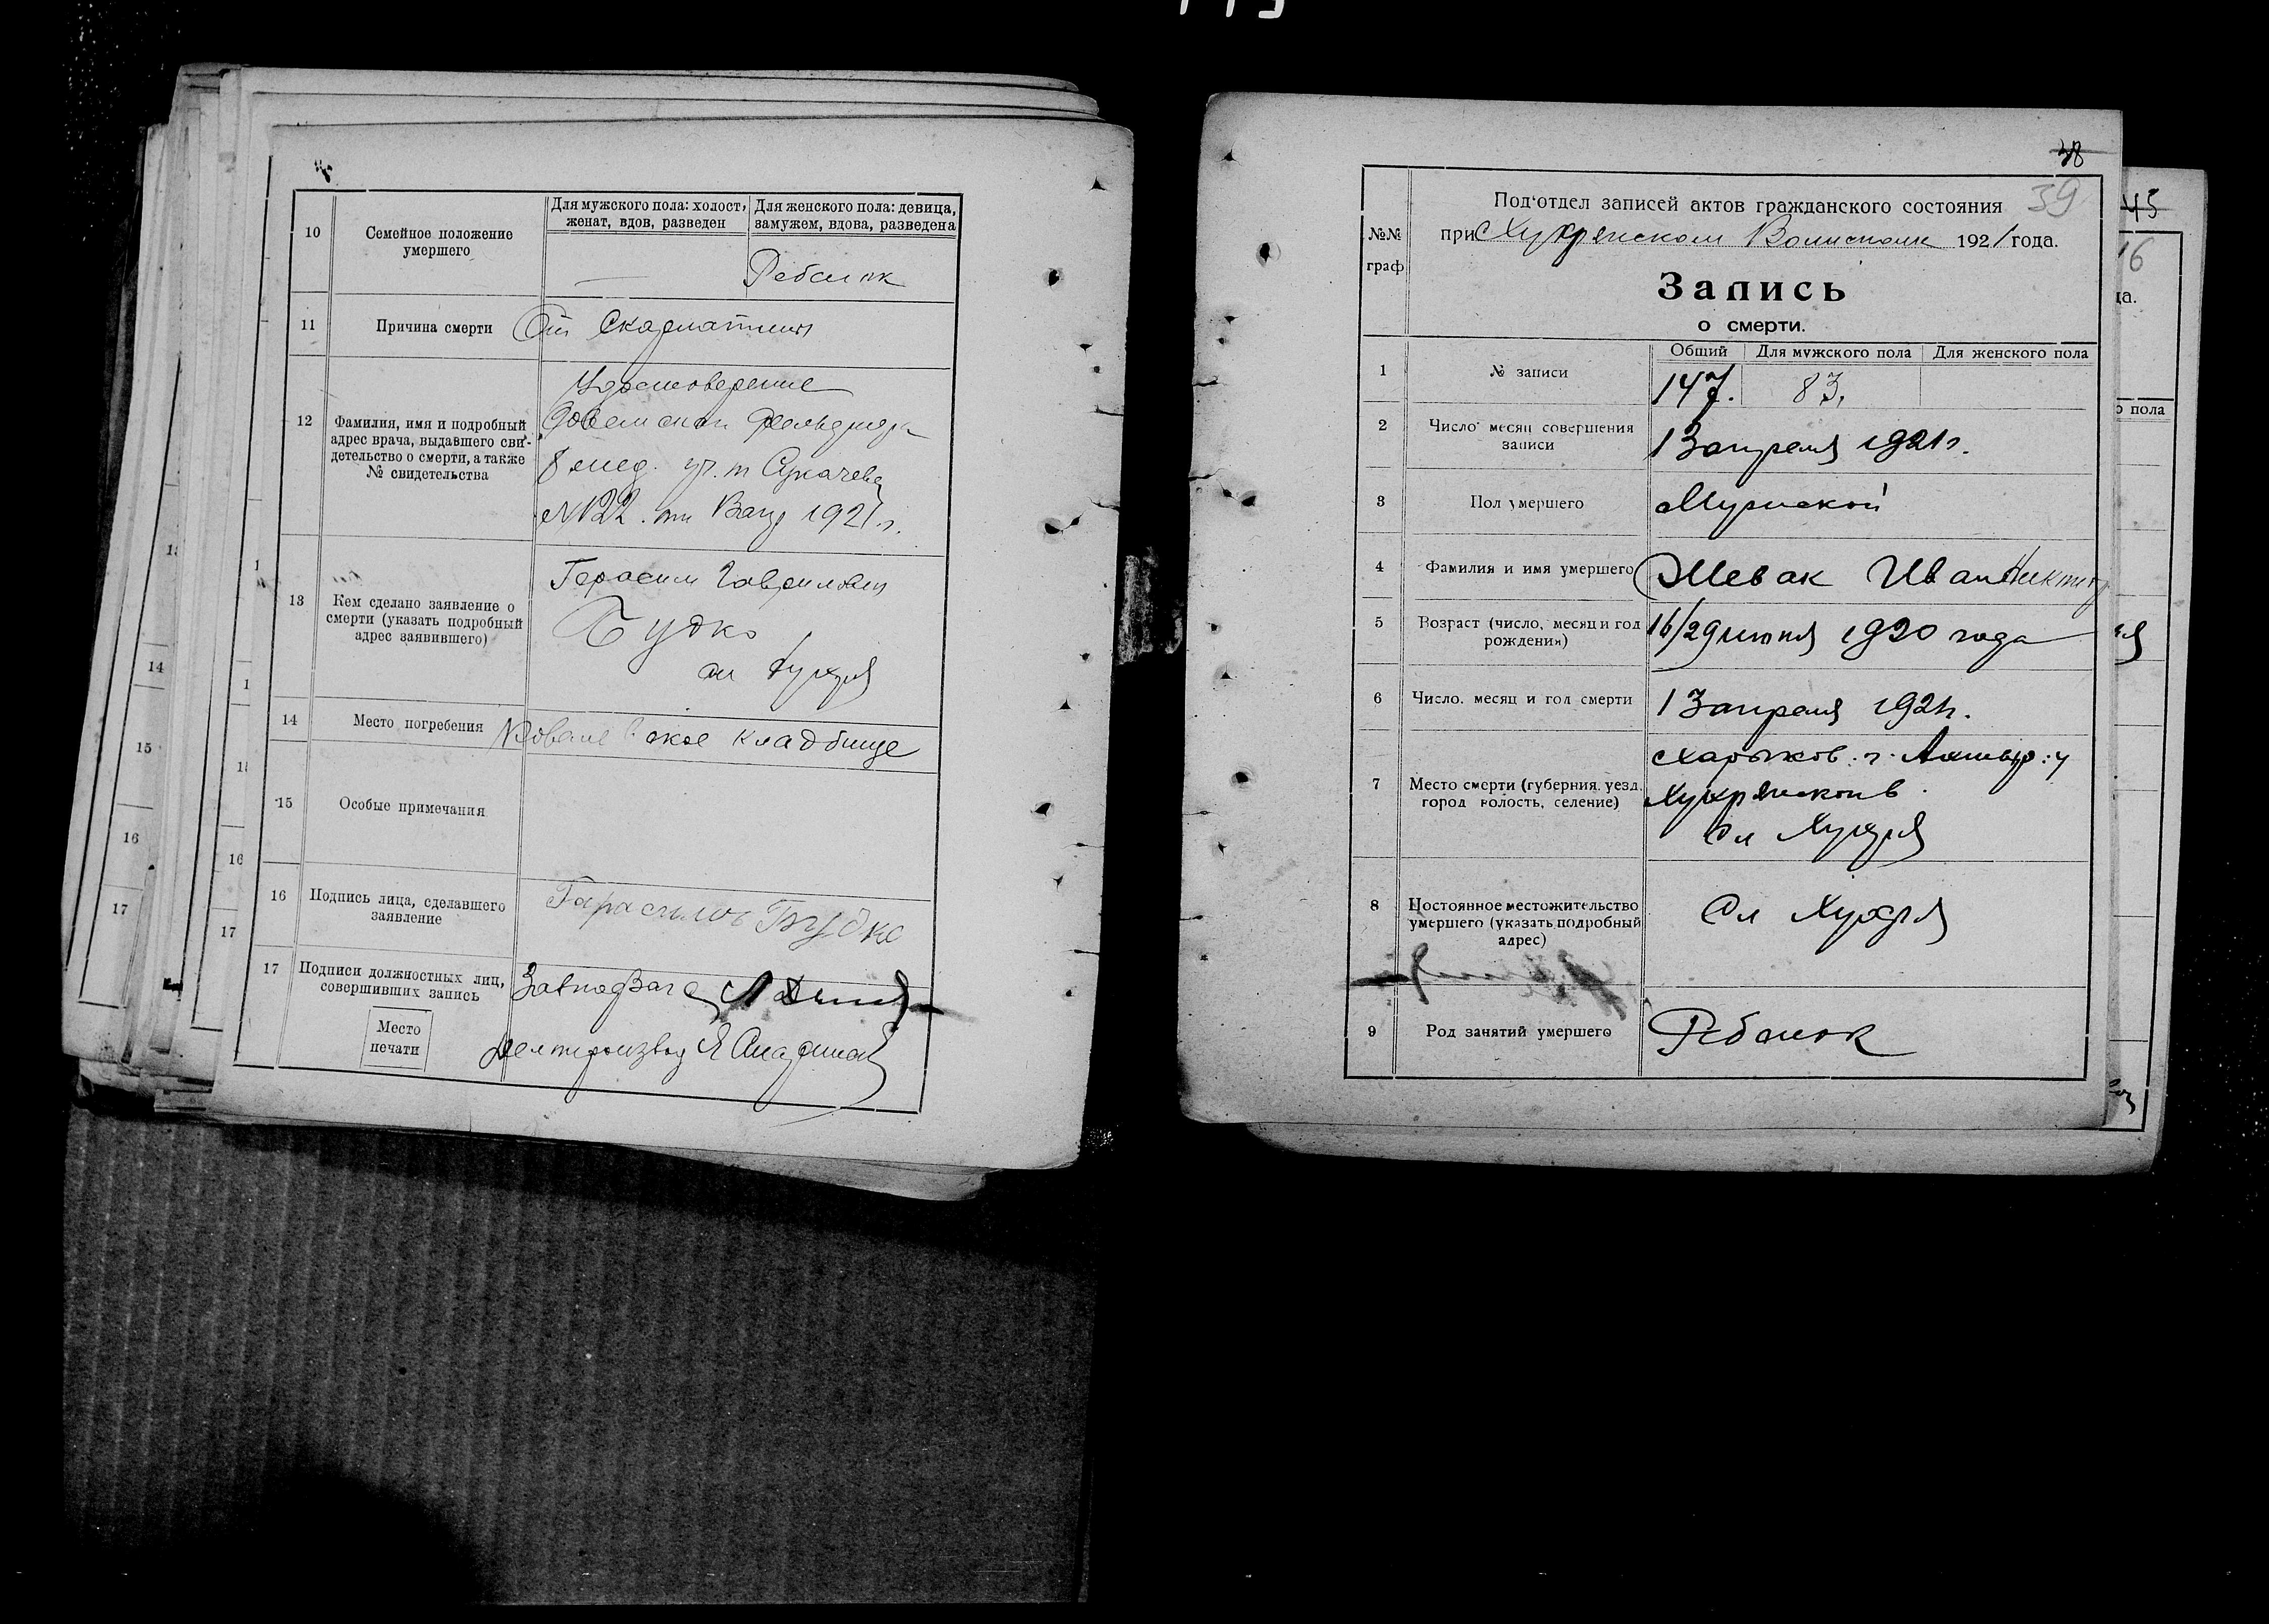 10
Семейное положение
умершего
Для мужского пола: холост,
женат, вдов, разведен
Для женского пола: девица,
замужем, вдова, разведена
—
Ребенок
11
Причина смерти
От Скарлатины
12
Фамилия, имя и подробный
адрес врача, выдавшего сви-
детельство о смерти, а также
№ свидетельства
Удостоверение
фельдшера
8 мед. уч. т Сукачева
№ 22. от 13 апр 1921 г.
13
Кем сделано заявление о
смерти (указать подробный
адрес заявившего)
Герасим Гаврилович
Будко
сл Хухря
14
Место погребения
кладбище
15
Особые примечания
16
Подпись лица, сделавшего
заявление
Гарасим Будко
17
Подписи должностных лиц,
совершивших запись
Место
печати
Завподзаг
Делопроизвод
14
15
16
17
1
1
16
17
38
39
№№
граф
Под'отдел записей актов гражданского состояния
при Хухрянском Волисполк 1921 года.
Запись
о смерти.
1
№ записи
Общий
Для мужского пола
Для женского пола
147.
83.
2
Число месяц совершения
записи
13 апреля 1921 г.
3
Пол умершего
Мужской
4
Фамилия и имя умершего
Шевак Иван Никит
5
Возраст (число, месяц и год
рождения)
16/29 июня 1920 года
6
Число, месяц и год смерти
13 апреля 1921 г.
7
Место смерти (губерния, уезд,
город волость, селение)
Харьков. г. Ахтыр. у
Хухрянской в.
Сл Хухря
8
Постоянное местожительство
умершего (указать подробный
адрес)
Сл Хухря
9
Род занятий умершего
Ребенок
45
16
да.
о пола